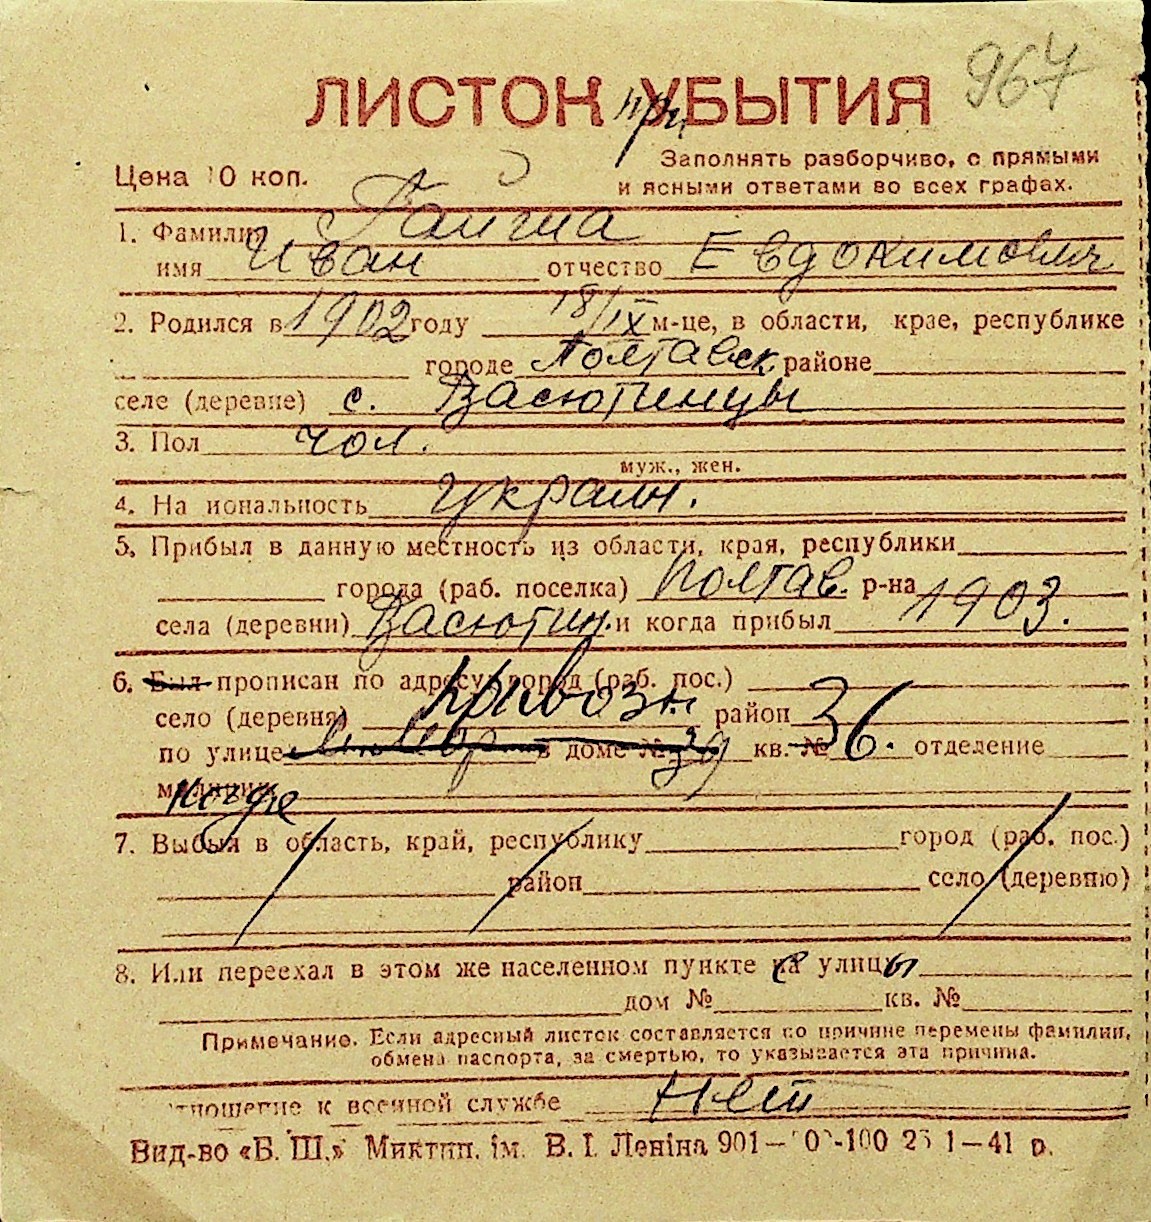 967
ЛИСТОК УБЫТИЯ
при
Цена 10 коп.
Заполнять разборчиво, с прямыми
и ясными ответами во всех графах.
1. Фамилия
имя Иван отчество Евдокимович
2. Родился в 1902 году 18/IX м-це, в области, крае, республике
городе Полтавск. районе
селе (деревне) с. Васютинцы
3. Пол чол.
муж., жен.
4. На иональность украин.
5. Прибыл в данную местность из области, края, республики
города (раб. поселка) Полтав. р-на 1903.
села (деревни) Васютин. и когда прибыл
6. Был прописан по адресу: город (раб. пос.)
село (деревня) район 36.
по улице в доме № 39 кв. № отделение
милиции
7. Выбыл в область, край, республику город (раб. пос.)
район село (деревню)
8. Или переехал в этом же населенном пункте с улицы
дом № кв. №
Примечание. Если адресный листок составляется по причине перемены фамилии,
обмена паспорта, за смертью, то указывается эта причина.
тношение к военной службе Нет
Вид-во «Б. Ш.» Миктип. ім. В. І. Леніна 901— 1—41 р.